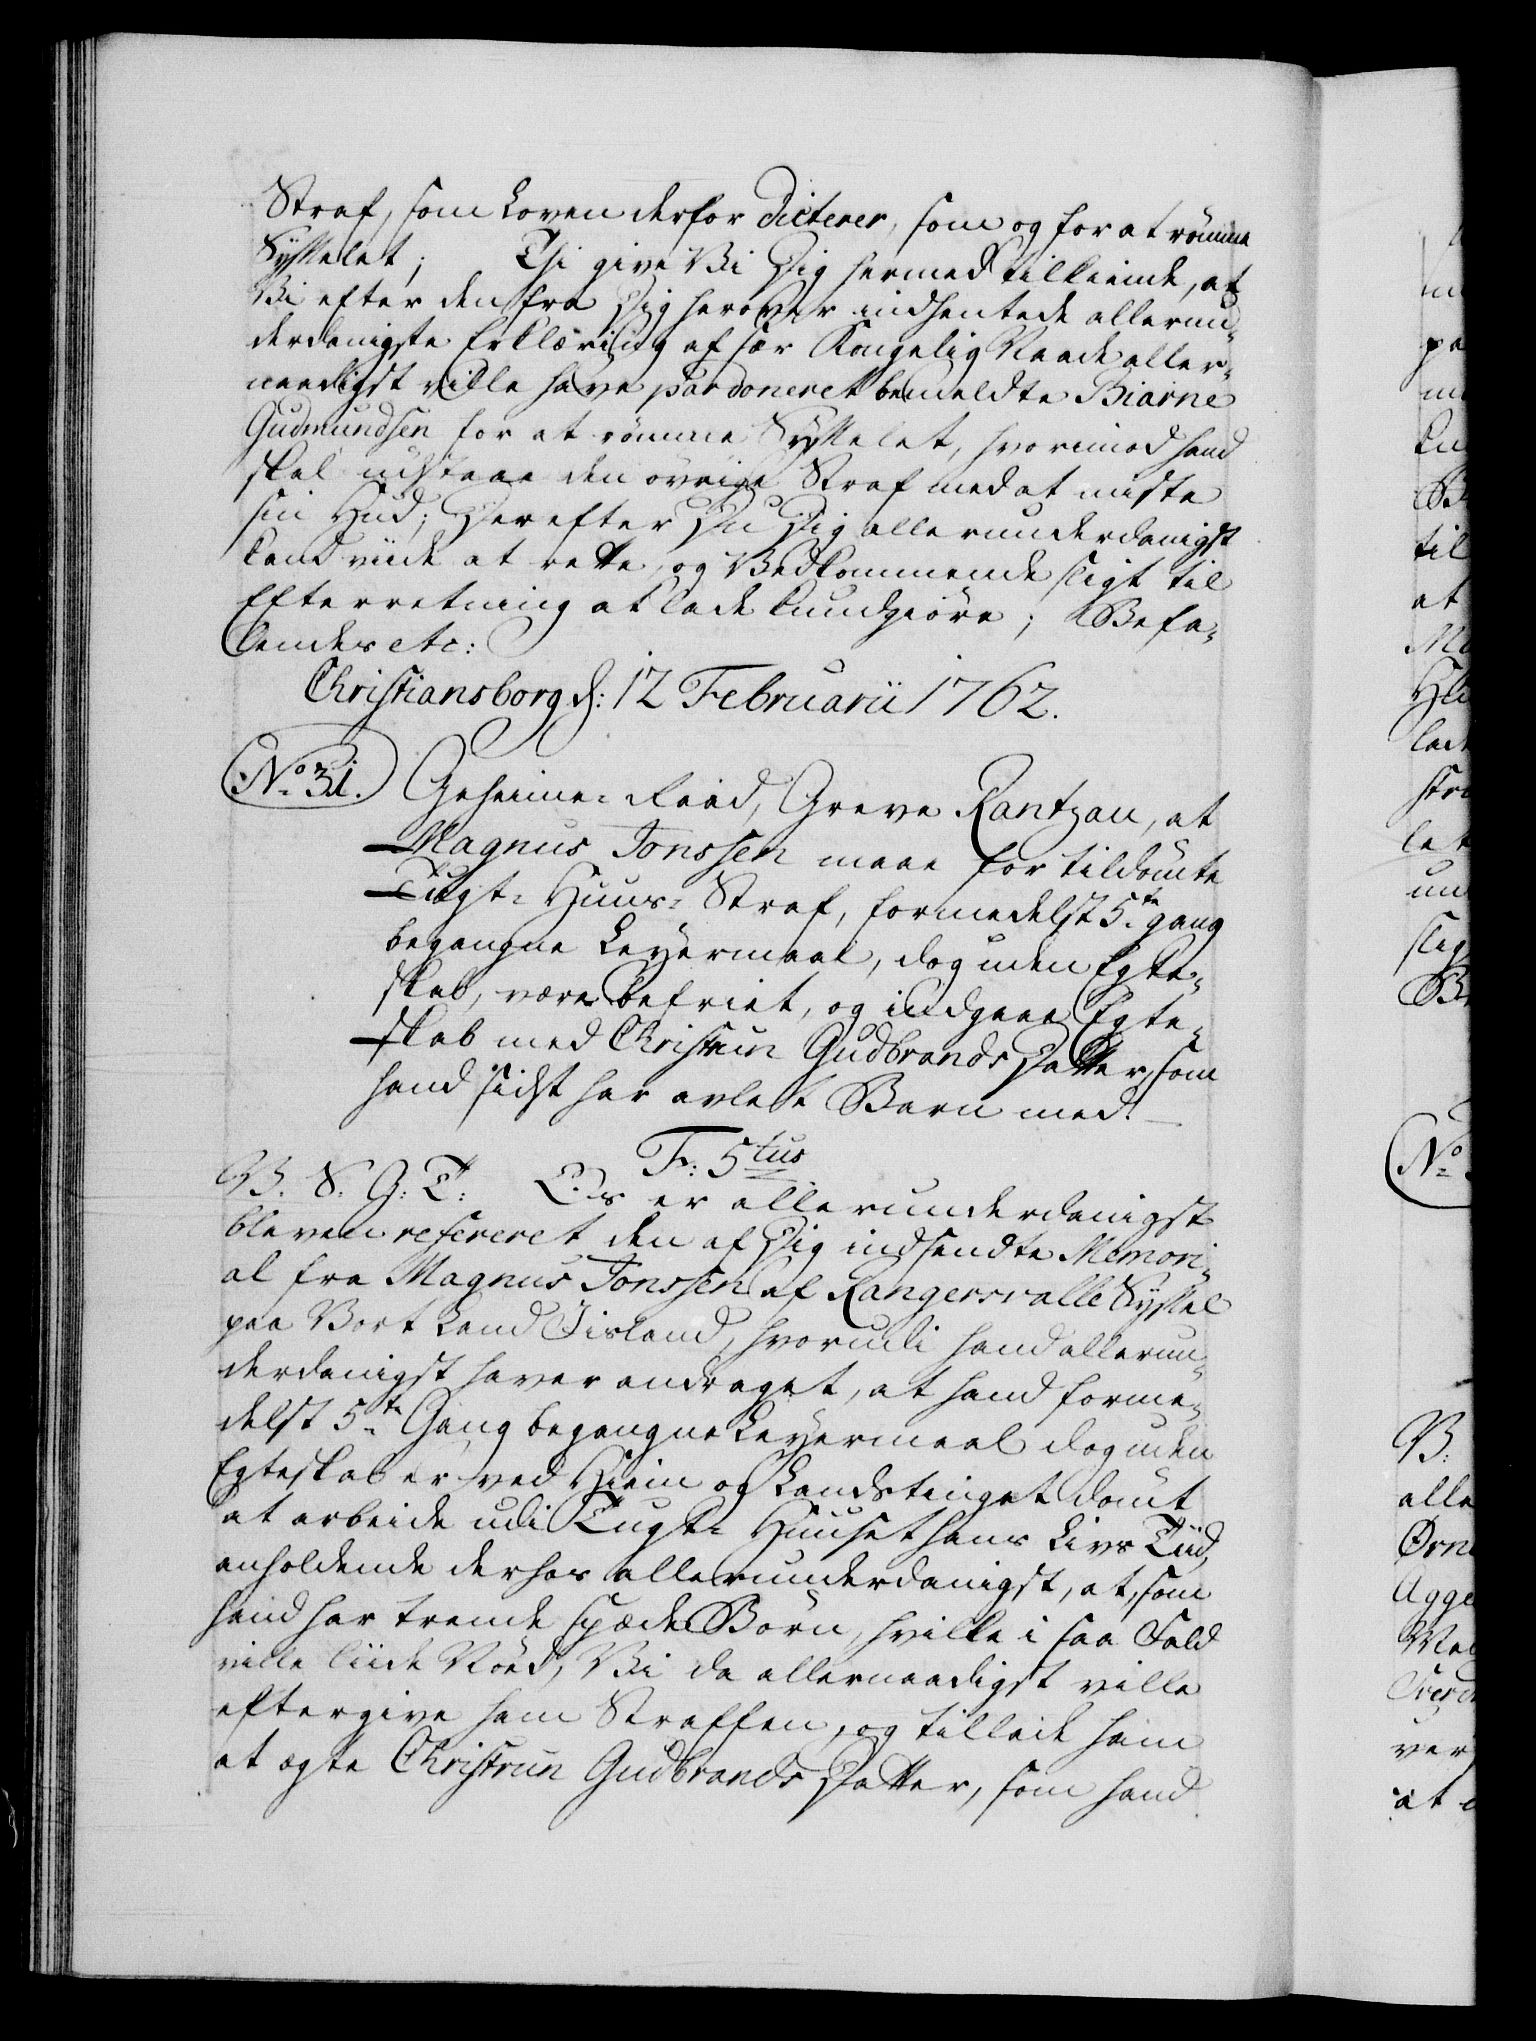 Straf, som Loven derfor dicterer, som og for at römme
Sysselet; Thi give Vi Dig hermed tilkiende, at
Vi efter den fra Dig herover indhentede allerun-
derdanigste Erklæring af sær Kongelig Naade aller-
naadigst ville have pardoneret bemeldte Biarne
Gudmundsen for at römme Sysselet, hvorimod hand
skal udstaae den övrige Straf med at miste
sin Hud; Derefter Du Dig allerunderdanigst
kand viide at rette, og Vedkommende sligt til
Efterretning at lade kundgiöre; Befa-
lendes etc:
Christiansborg d: 12 Februarii 1762.
No 31. Geheime-Raad, Greve Rantzau, at
Magnus Jonssen maae for tildömte
Tugt-Huus-Straf, formedelst 5.te gang
begangne Leyermaal, dog uden Egte-
skab, være befriet, og indgaae Egte-
skab med Christrun Gudbrands Datter, som
hand sidst har avlet Barn med.
F: 5tus
V. S. G: T: Os er allerunderdanigst
bleven refereret den af Dig indsendte Memori-
al fra Magnus Jonssen af Rangersvalle Syssel
paa Vort Land Iisland, hvorudi hand allerun-
derdanigst haver andraget, at hand forme-
delst 5.te Gang begangne Leyermaal dog uden
Egteskab er ved Hiem og Landstinget dömt
at arbeide udi Tugt-Huuset hans Livs Tiid,
anholdende derhos allerunderdanigst, at, som
hand har trende spæde Börn, hvilke i saa Fald
ville liide Nöd, Vi da allernaadigst ville
eftergive ham Straffen, og tillade ham
at ægte Christrun Gudbrands Datter, som hand